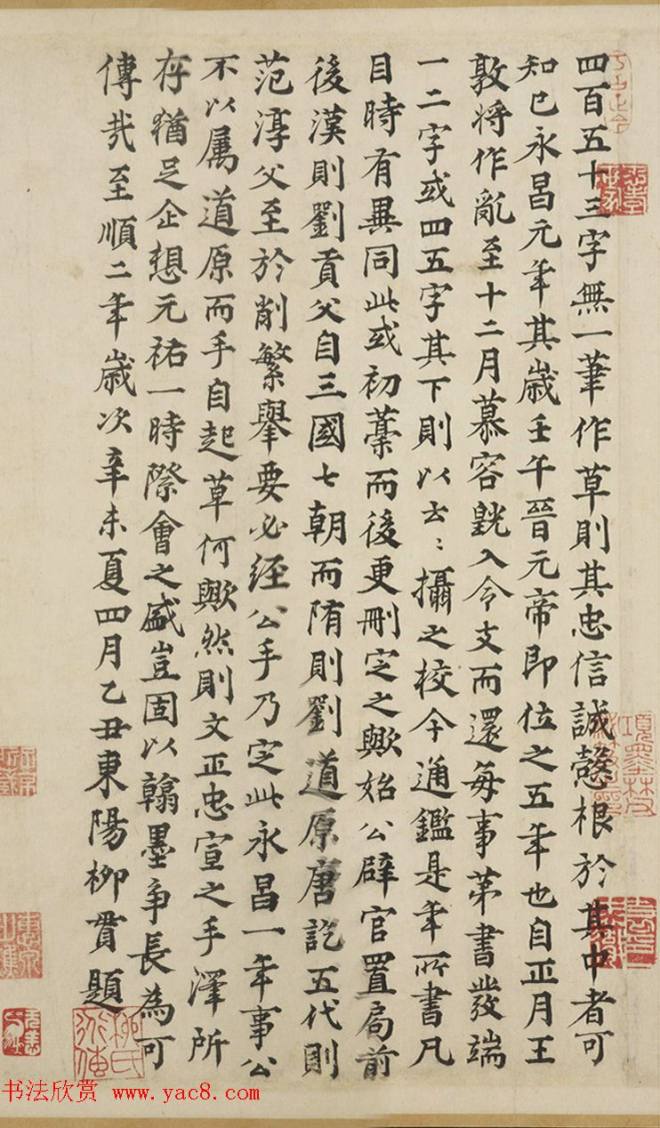 四百五十三字無一筆作草則其忠信誠慤根於其中者可
知已永昌元年其歲壬午晉元帝即位之五年也自正月王
敦將作亂至十二月慕容皝入令支而還每事第書發端
一二字或四五字其下則以云〻攝之校今通鑑是年所書凡
目時有異同此或初藁而後更刪定之歟始公辟官置局前
後漢則劉貢父自三國七朝而隋則劉道原唐訖五代則
范淳父至於削繁舉要必經公手乃定此永昌一年事公
不以属道原而手自起草何歟然則文正忠宣之手澤所
存猶足企想元祐一時際會之盛豈固以翰墨争長為可
傳哉至順二年歲次辛未夏四月乙丑東陽柳貫題
柳氏
項墨林
书法欣赏 www.yac8.com